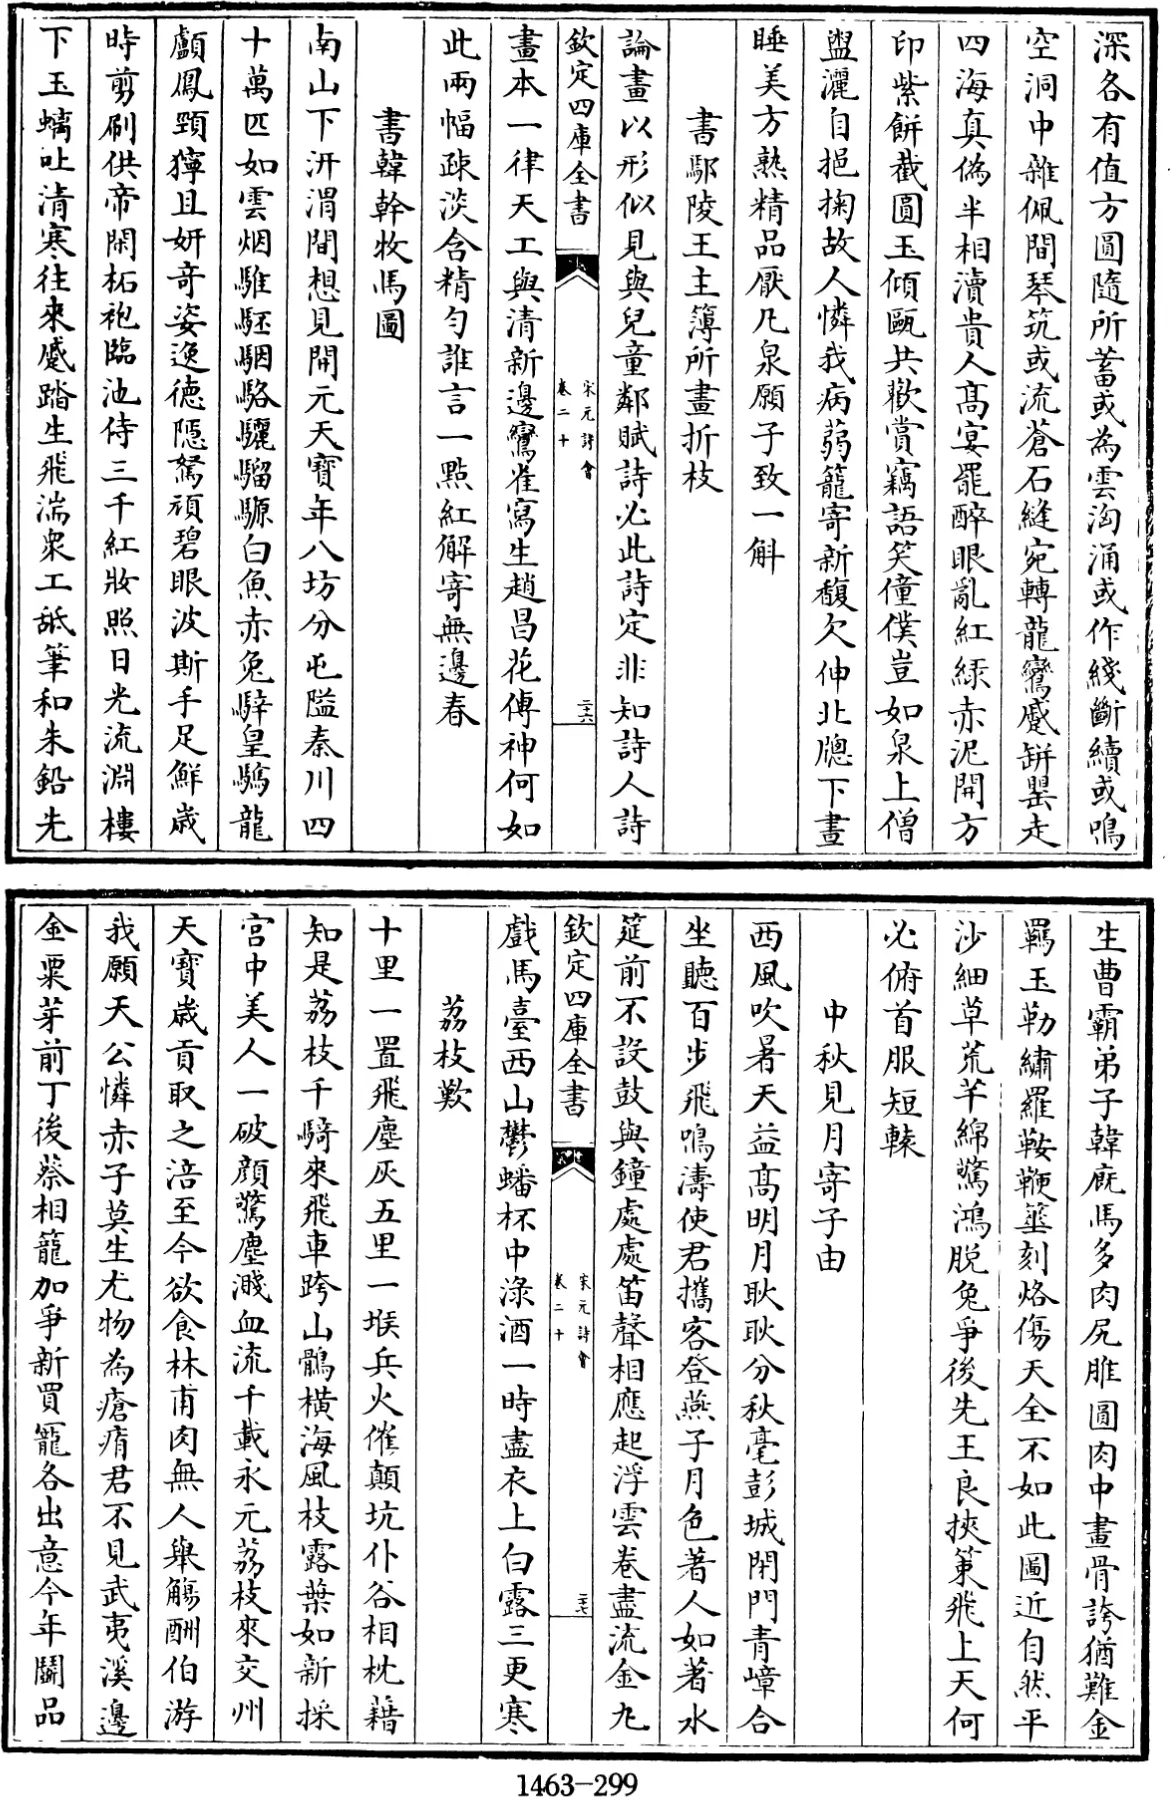 深各有值方圓隨所蓄或為雲洶涌或作綫斷續或鳴
空洞中雜佩間琴筑或流蒼石縫宛轉龍鸞蹙缾罌走
四海真偽半相瀆貴人高宴罷醉眼亂紅綠赤泥開方
印紫餅截圓玉傾甌共歎賞竊語笑僮僕豈如泉上僧
盥灑自挹掬故人憐我病蒻籠寄新馥欠伸北牕下晝
睡美方熟精品厭凡泉願子致一斛
書鄢陵王主簿所畫折枝
論畫以形似見與兒童鄰賦詩必此詩定非知詩人詩
欽定四庫全書
宋元詩會
卷二十
二十六
畫本一律天工與清新邊鸞雀寫生趙昌花傅神何如
此兩幅疎淡含精勻誰言一點紅解寄無邊春
書韓幹牧馬圖
南山下汧渭間想見開元天寶年八坊分屯隘秦川四
十萬匹如雲烟騅駓駰駱驪騮騵白魚赤兔騂皇䮧龍
顱鳳頸獰且妍奇姿逸德隱駑頑碧眼波斯手足鮮歲
時剪刷供帝閑柘袍臨池侍三千紅妝照日光流淵樓
下玉螭吐清寒往來蹙踏生飛湍衆工舐筆和朱鉛先
生曹霸弟子韓廐馬多肉尻脽圓肉中畫骨誇猶難金
羈玉勒繡羅鞍鞭箠刻烙傷天全不如此圖近自然平
沙細草荒芊綿驚鴻脫兔爭後先王良挾策飛上天何
必俯首服短轅
中秋見月寄子由
西風吹暑天益高明月耿耿分秋毫彭城閉門青嶂合
坐聽百步飛鳴濤使君攜客登燕子月色著人如著水
筵前不設鼓與鐘處處笛聲相應起浮雲卷盡流金丸
欽定四庫全書
宋元詩會
卷二十
二十七
戲馬臺西山鬱蟠杯中淥酒一時盡衣上白露三更寒
荔枝歎
十里一置飛塵灰五里一堠兵火催顛坑仆谷相枕藉
知是荔枝千騎來飛車跨山鶻橫海風枝露葉如新採
宮中美人一破顔驚塵濺血流千載永元荔枝來交州
天寶歲貢取之涪至今欲食林甫肉無人舉觴酬伯游
我願天公憐赤子莫生尤物為瘡痏君不見武夷溪邊
金粟芽前丁後蔡相籠加爭新買寵各出意今年鬬品
1463-299